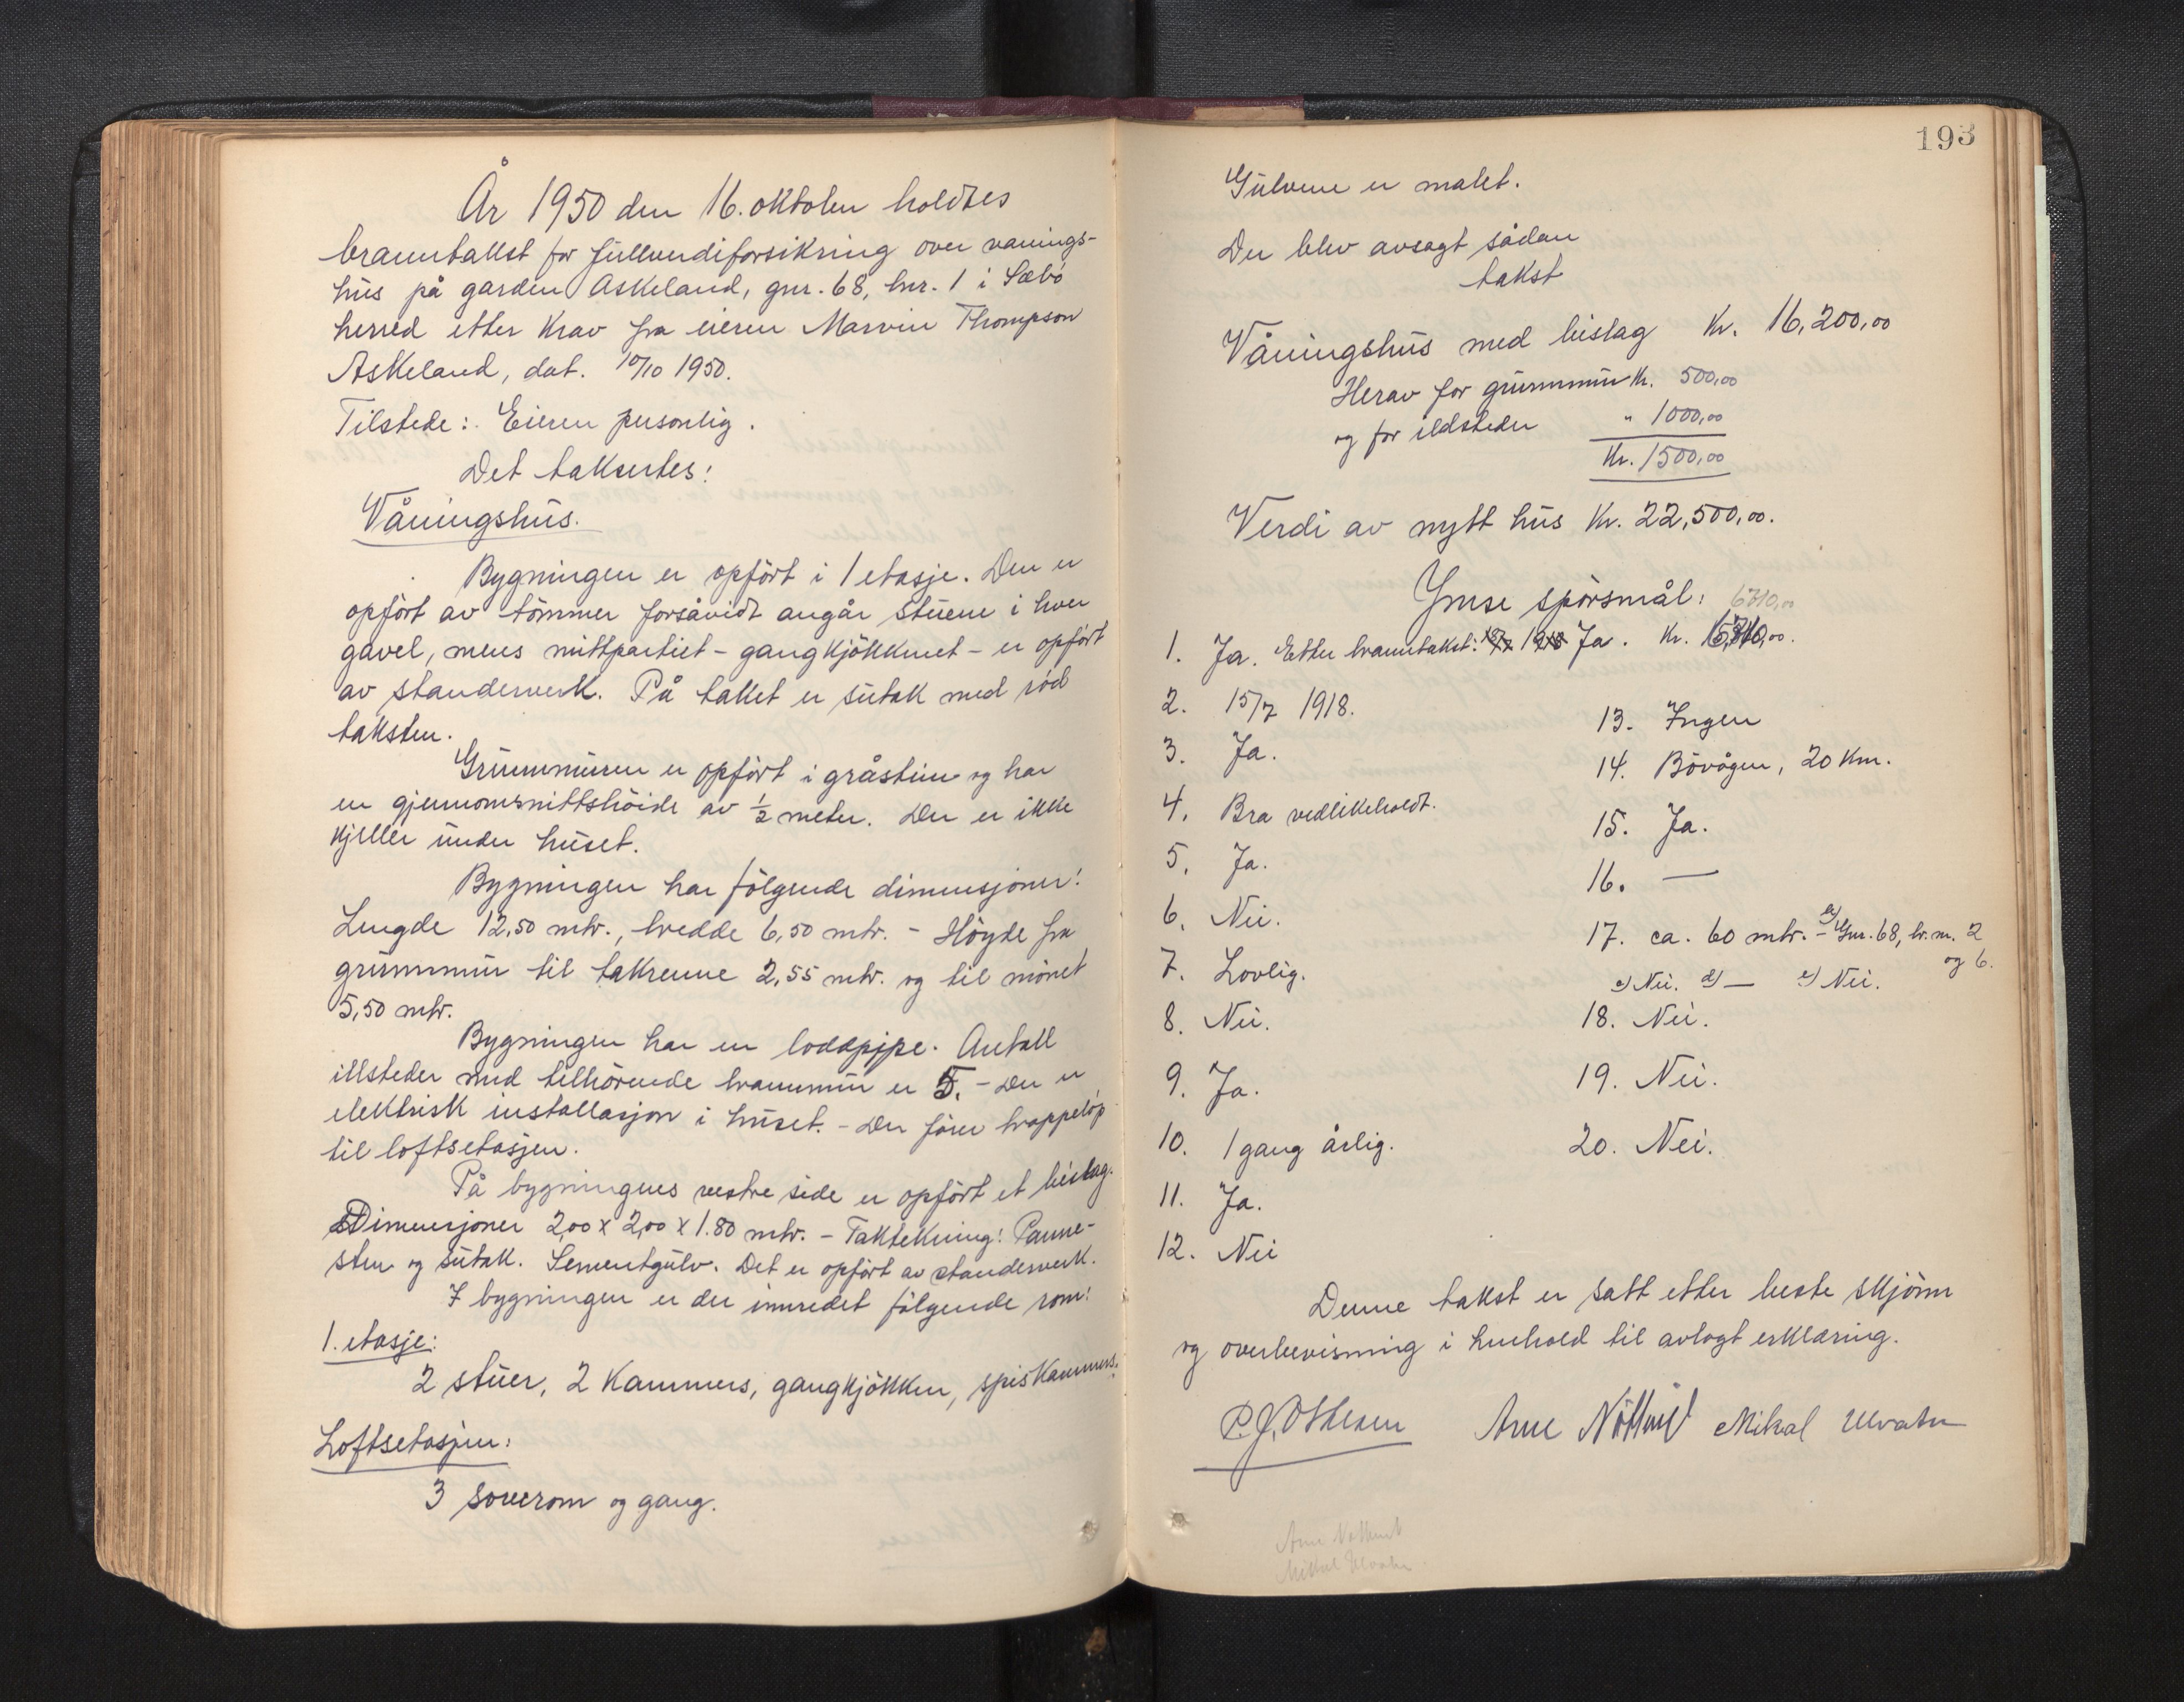 År 1950 den 16. oktober holdtes
branntakst for fullverdiforsikring over vånings-
hus på garden Askeland, gnr. 68, bnr. 1 i Sæbø
herred etter krav fra eieren Marvin Thompson
Askeland, dat. 10/10 1950.
Tilstede: Eieren personlig.
Det taksertes:
Våningshus.
Bygningen er opført i 1 etasje. Den er
opført av tømmer forsåvidt angår stuene i hver
gavel, mens mittpartiet - gangkjøkkenet - er opført
av standerverk. På taket er sutak med rød
taksten.
Grunnmuren er opført i gråstein og har
en gjennomsnittshøide av ½ meter. Der er ikke
kjeller under huset.
Bygningen har følgende dimensjoner:
Lengde 12,50 mtr., bredde 6,50 mtr. - Høyde fra
grunnmur til takrenne 2,55 mtr. og til mønet
5,50 mtr.
Bygningen har en loddpipe. Antall
illsteder med tilhørende brannmur er 5. - Der er
elektrisk installasjon i huset. - Der fører trappeløp
til loftsetasjen.
På bygningens vestre side er opført et bislag.
Dimensjoner 2,00 x 2,00 x 1.80 mtr. - Taktekning: Panne-
sten og sutak. Sementgulv. Det er opført av standerverk.
I bygningen er der innredet følgende rom:
1. etasje:
2 stuer, 2 kammers, gangkjøkken, spiskammers.
Loftsetasjen:
3 soverom og gang.
193
Gulvene er malt.
Der blev avsagt sådan
takst
Våningshus med bislag Kr. 16,200,00
Herav for grunnmur Kr. 500,00
og for ildsteder " 1000,00
Kr. 1500,00
Verdi av nytt hus Kr. 22,500,00.
Ymse spørsmål: 6710,00
1. Ja. Etter branntakst: 1918 Ja. Kr.
2. 15/7 1918.
3. Ja.
4. Bra vedlikeholdt.
5. Ja.
6. Nei.
7. Lovlig.
8. Nei.
9. Ja.
10. 1 gang årlig.
11. Ja.
12. Nei
13. Ingen
14. Bøvågen, 20 km.
15. Ja.
16. —
17. ca. 60 mtr. - b) Gnr. 68, br. nr. 2
og 6.
c) Nei. d) — e) Nei.
18. Nei.
19. Nei.
20. Nei.
Denne takst er satt etter beste skjønn
og overbevisning i henhold til avlagt erklæring.
Arne Nøttveit Mikal Ulvatn
Arne Nøttveit
Mikal Ulvatn